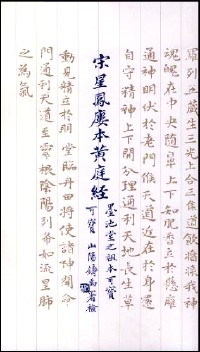 羅列五藏生三光上合三焦道飲醬漿我神
魂魄在中央隨鼻上下知肥香立於懸膺
通神明伏於老門候天道近在於身還
自守精神上下開分理通利天地長生草
宋星鳳廔本黃庭經
墨池堂之祖本可寶
可寶 山陽 署檢
動見精立於明堂臨丹田將使諸神開命
門通利天道至靈根陰陽列布如流星肺
之為氣